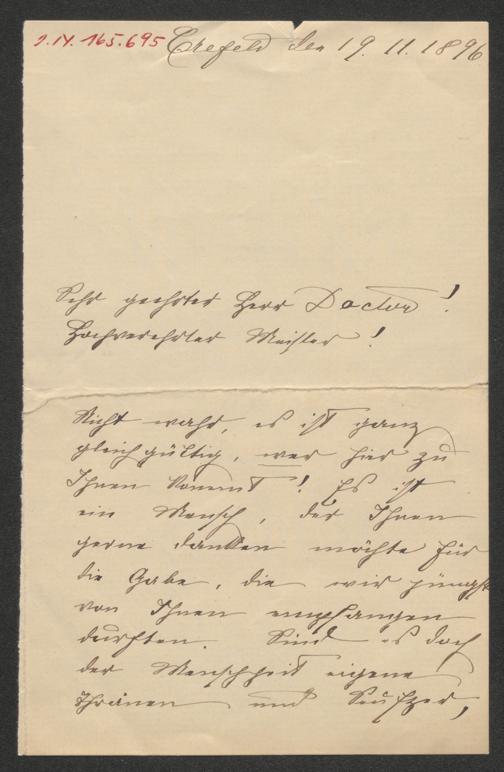 I.N. 165.695 Crefeld den 19. 11. 1896
Sehr geehrter Herr Doctor!
Hochverehrter Meister!
Nicht wahr, es ist ganz
gleichgültig, wer hier zu
Ihnen kommt! Es ist
ein Mensch, der Ihnen
gerne danken möchte für
die Gabe, die wir jüngst
von Ihnen empfangen
durften. Sind es doch
der Menschheit eigene
Thränen und Seufzer,